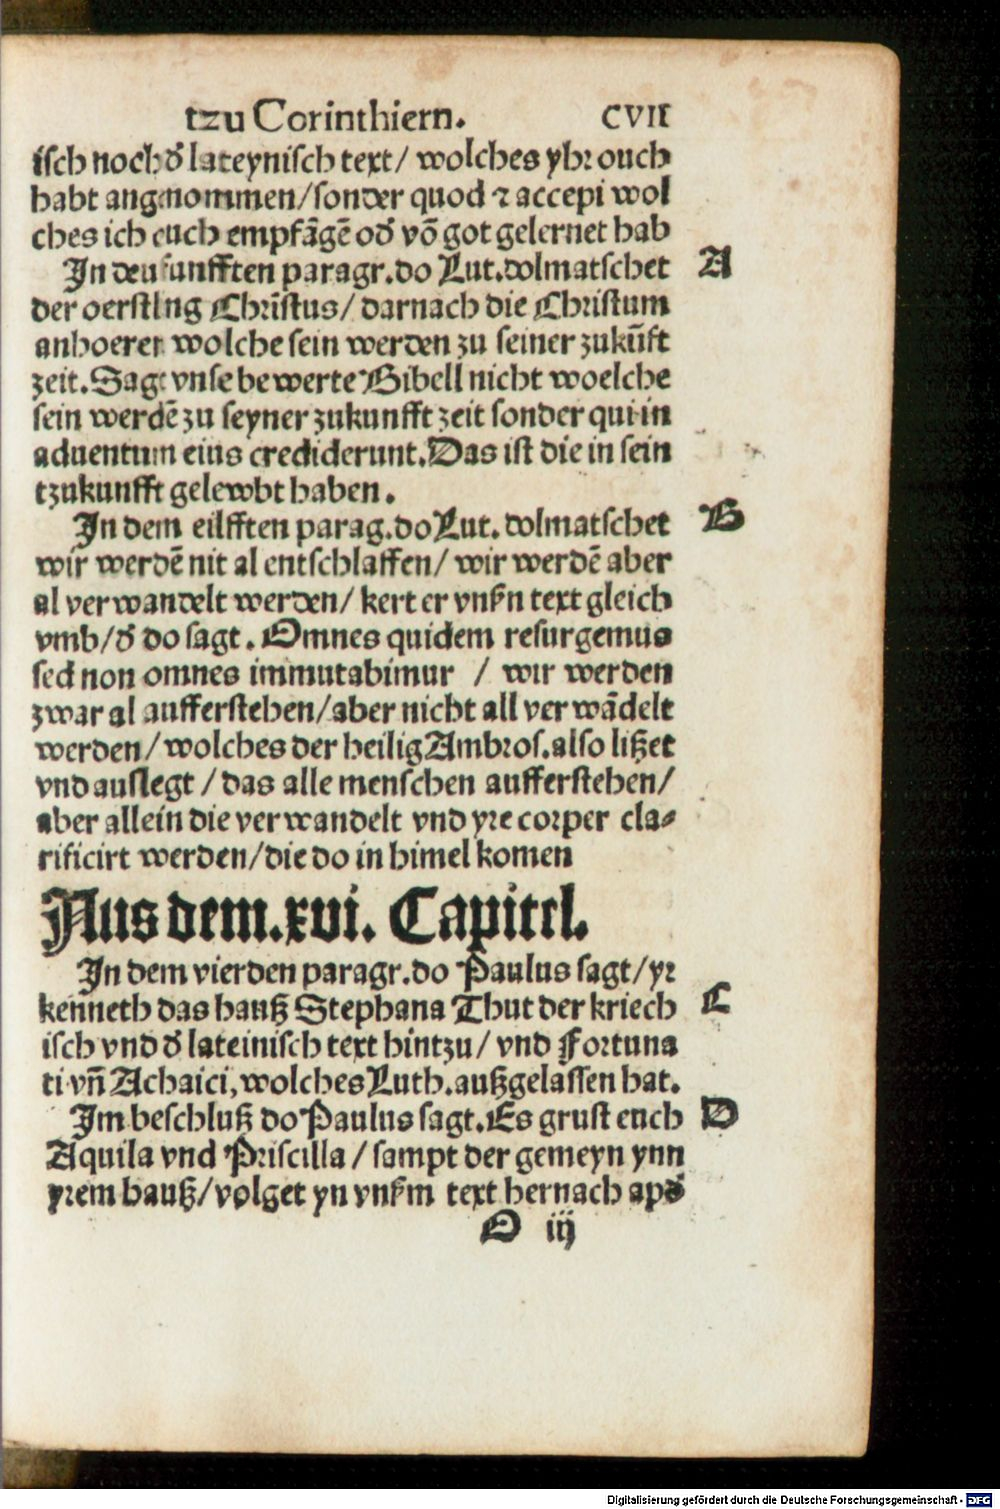 tzu Corinthiern. CVII
isch noch d̕ lateynisch text/ wolches yhr ouch
habt angnommen/sonder quod ⁊ accepi wol
ches ich euch empfãgẽ od̕ võ got gelernet hab
In den funfften paragr.do Lut.dolmatschet A
der oerstling Chrĩstus/ darnach die Christum
anhoeren wolche sein werden zu seiner zukũft
zeit.Sagt vnse bewerte Bibell nicht woelche
sein werdẽ zu seyner zukunfft zeit sonder qui in
aduentum eius crediderunt.Das ist die in sein
tzukunfft gelewbt haben.
In dem eilfften parag.do Lut. dolmatschet B
wir werdẽ nit al entschlaffen/ wir werdẽ aber
al verwandelt werden/ kert er vnßn text gleich
vmb/d̕ do sagt. Omnes quidem resurgemus
sed non omnes immutabimur / wir werden
zwar al aufferstehen/aber nicht all verwãdelt
werden/wolches der heilig Ambros.also lißet
vnd auslegt /das alle menschen aufferstehen/
aber allein die verwandelt vnd yre corper cla⸗
rificirt werden/die do in himel komen
Aus dem.xvi. Capitel.
In dem vierden paragr.do Paulus sagt/yr
kenneth das hauß Stephana Thut der kriech C
isch vnd d̕ lateinisch text hintzu/ vnd Fortuna
ti vñ Achaici,wolches Luth.außgelassen hat.
Im beschluß do Paulus sagt.Es grust euch D
Aquila vnd Priscilla / sampt der gemeyn ynn
yrem hauß/volget yn vnßm text hernach apd̕
O iij
Digitalisierung gefördert durch die Deutsche Forschungsgemeinschaft - DFG